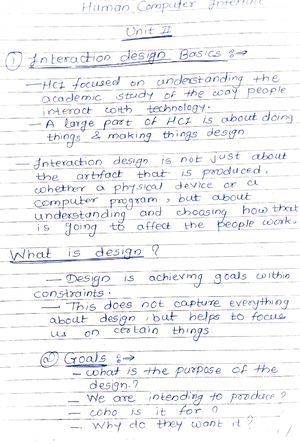 Human Computer Interface
Unit II
① Interaction design Basics :→
— HCI focused on understanding the
academic study of the way people
interact with technology.
— A large part of HCI is about doing
things & making things design
— Interaction design is not just about
the artifact that is produced,
whether a physical device or a
computer program, but about
understanding and choosing how that
is going to affect the people work.
What is design ?
— Design is achieving goals within
constraints.
— This does not capture everything
about design, but helps to focus
us on certain things.
ⓐ Goals :→
— what is the purpose of the
design.?
— We are intending to produce ?
— who is it for ?
— Why do they want it ?